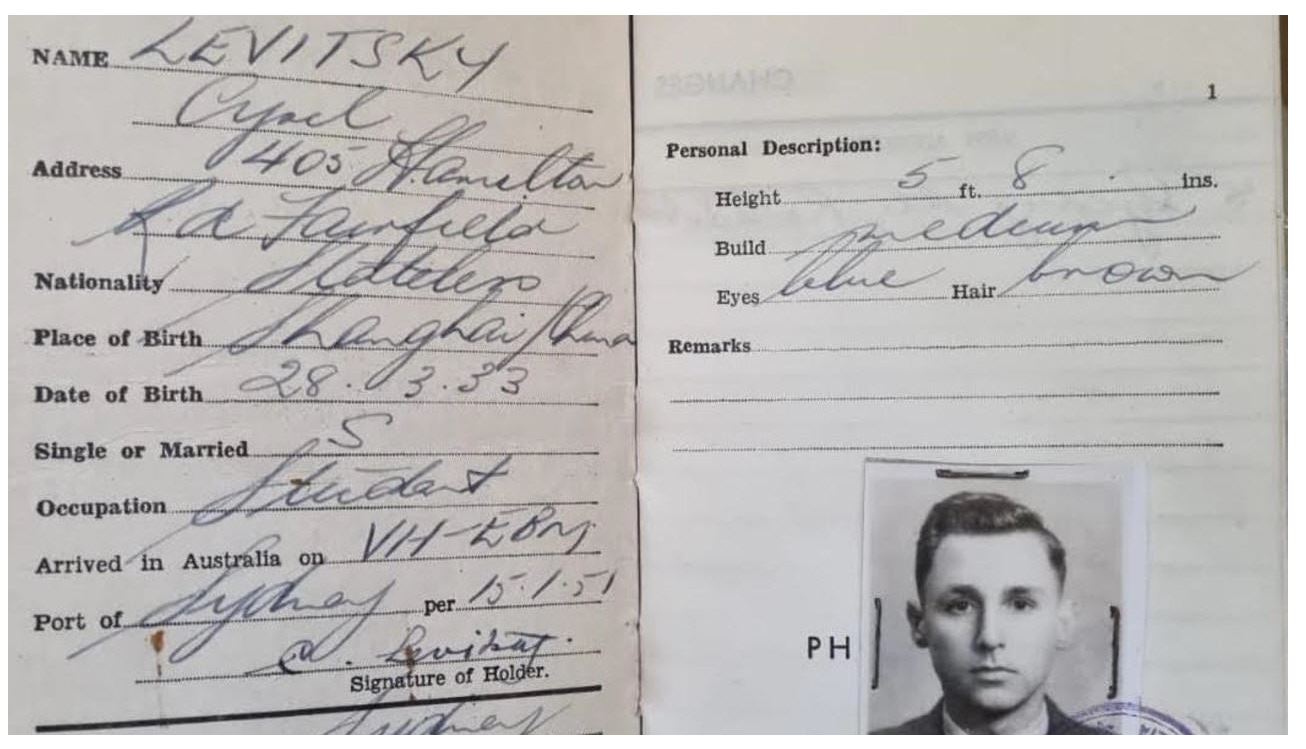 NAME LEVITSKY
Cyril
Address 405 Hamilton
Rd Fairfield
Nationality Stateless
Place of Birth Shanghai/China
Date of Birth 28.3.33
Single or Married S
Occupation Student
Arrived in Australia on VH-EBM
Port of Sydney per 15.1.51
C. Levitsky
Signature of Holder.
Sydney
1
Personal Description:
Height 5 ft. 8 ins.
Build medium
Eyes blue Hair brown
Remarks
PH